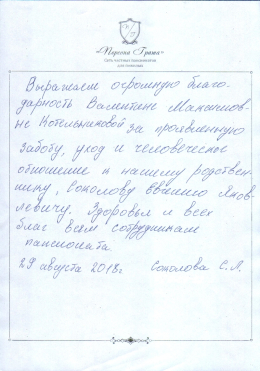 «Персона Грата»
Сеть частных пансионатов
для пожилых
Выражаем огромную благо-
дарность Валентине Максимов-
не Котельниковой за проявленную
заботу, уход и человеческое
отношение к нашему родствен-
нику, Соколову Евгению Яков-
левичу. Здоровья и всех
благ всем сотрудникам
пансионата.
29 августа 2018г Соколова С.А.